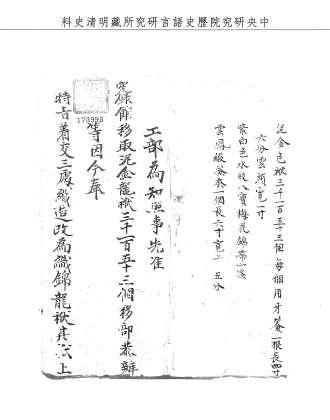 中央研究院歷史語言研究所藏明清史料
泥金包袱三千一百五十三個每個用牙籤一根長四寸
六分雲頭寬一寸
紫白色水紋八寶梅花錦帶一條
雲鳳緞籤套一個長六寸寬二寸五分
工部為知照事先准
實錄館移取泥金龍袱三千一百五十三個移部恭辦
等因今奉
特旨著交三處織造改為織錦龍袱其式上
173996